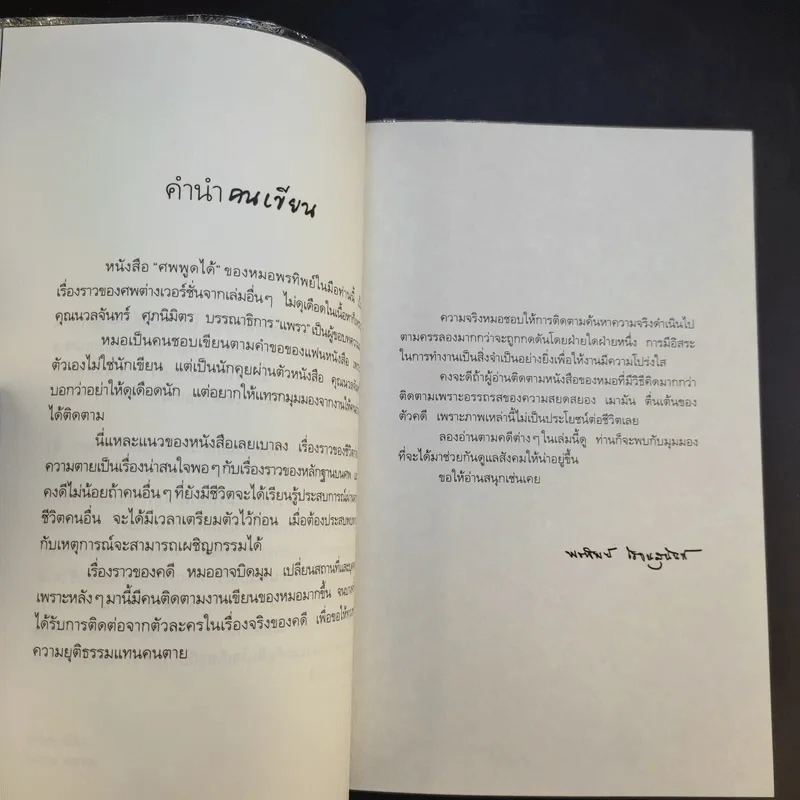 คำนำ คนเขียน
หนังสือ "ศพพูดได้" ของหมอพรทิพย์ในมือท่านนี้
เรื่องราวของศพต่างเวอร์ชั่นจากเล่มอื่นๆ ไม่ดุเดือดในเนื้อหา
คุณนวลจันทร์ ศุภนิมิตร บรรณาธิการ "แพรว" เป็นผู้ชอบ
หมอเป็นคนชอบเขียนตามคำขอของแฟนหนังสือ
ตัวเองไม่ใช่นักเขียน แต่เป็นนักคุยผ่านตัวหนังสือ
บอกว่าอย่าให้ดุเดือดนัก แต่อยากให้แทรกมุมมองจากงานให้
ได้ติดตาม
นี่แหละแนวของหนังสือเลยเบาลง เรื่องราวของชีวิต
ความตายเป็นเรื่องน่าสนใจพอๆ กับเรื่องราวของหลักฐานบนศพ
คงดีไม่น้อยถ้าคนอื่นๆ ที่ยังมีชีวิตจะได้เรียนรู้ประสบการณ์
ชีวิตคนอื่น จะได้มีเวลาเตรียมตัวไว้ก่อน เมื่อต้องประสบ
กับเหตุการณ์จะสามารถเผชิญกรรมได้
เรื่องราวของคดี หมออาจบิดมุม เปลี่ยนสถานที่และ
เพราะหลังๆ มานี้มีคนติดตามงานเขียนของหมอมากขึ้น
ได้รับการติดต่อจากตัวละครในเรื่องจริงของคดี เพื่อขอให้
ความยุติธรรมแทนคนตาย
ความจริงหมอชอบให้การติดตามค้นหาความจริงดำเนินไป
ตามครรลองมากกว่าจะถูกกดดันโดยฝ่ายใดฝ่ายหนึ่ง การมีอิสระ
ในการทำงานเป็นสิ่งจำเป็นอย่างยิ่งเพื่อให้งานมีความโปร่งใส
คงจะดีถ้าผู้อ่านติดตามหนังสือของหมอที่มีวิธีคิดมากกว่า
ติดตามเพราะอรรถรสของความสยดสยอง เมามัน ตื่นเต้นของ
ตัวคดี เพราะภาพเหล่านี้ไม่เป็นประโยชน์ต่อชีวิตเลย
ลองอ่านตามคดีต่างๆ ในเล่มนี้ดู ท่านก็จะพบกับมุมมอง
ที่จะได้มาช่วยกันดูแลสังคมให้น่าอยู่ขึ้น
ขอให้อ่านสนุกเช่นเคย
พรทิพย์ โรจนสุนันท์